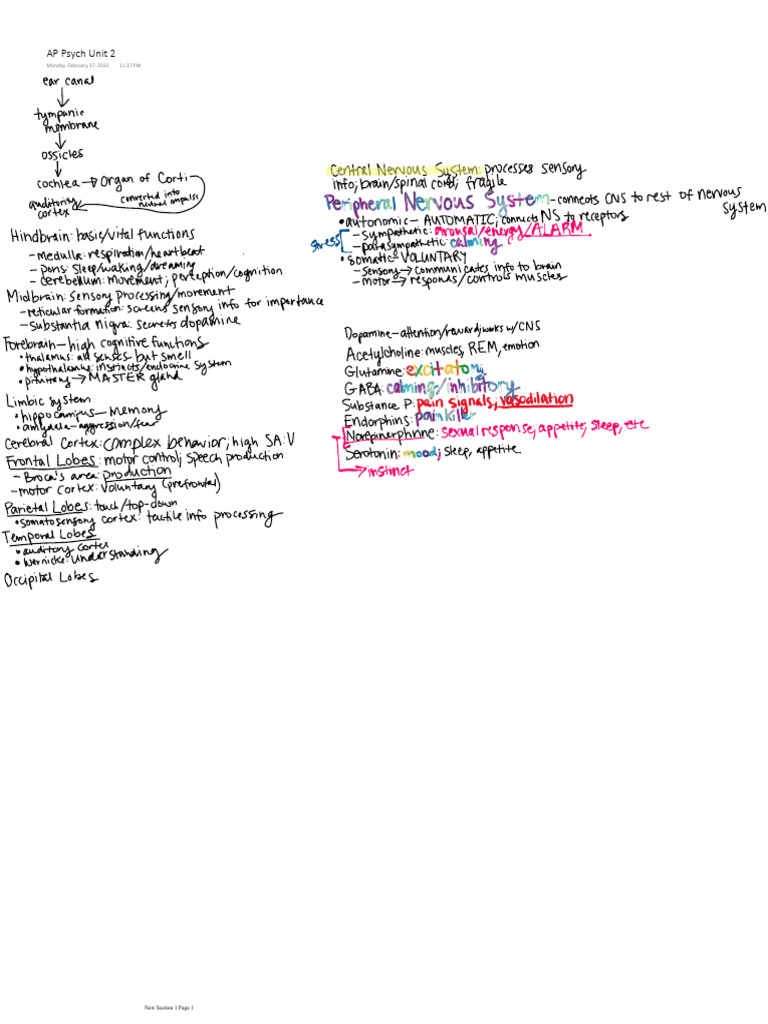 AP Psych Unit 2
Monday, February 17, 2025 11:37 PM
ear canal
tympanic
membrane
ossicles
cochlea → Organ of Corti
converted into
neural impulse
auditory
cortex
Hindbrain: basis/vital functions
- medulla: respiration/heartbeat
- pons: sleep/waking/dreaming
- cerebellum: movement; perception/cognition
Midbrain: sensory processing/movement
- reticular formation: screens sensory info for importance
- substantia nigra: secretes dopamine
Forebrain - high cognitive functions
• thalamus: all senses but smell
• hypothalamus: instincts/endocrine system
• pituitary → MASTER gland
Limbic system
• hippocampus - memory
• amygdala - aggression/fear
Cerebral Cortex: complex behavior; high SA:V
Frontal Lobes: motor control; speech production
- Broca's area: production
- motor cortex: voluntary (prefrontal)
Parietal Lobes: touch/top-down
• somatosensory cortex: tactile info processing
Temporal Lobes
• auditory cortex
• Wernicke: understanding
Occipital Lobes
Central Nervous System: processes sensory
info; brain/spinal cord; fragile
Peripheral Nervous System - connects CNS to rest of nervous
system
• autonomic - AUTOMATIC; connects NS to receptors
stress
- sympathetic: arousal/energy/ALARM
- parasympathetic: calming
• somatic - VOLUNTARY
- sensory → communicates info to brain
- motor → responds/controls muscles
Dopamine - attention/reward; works w/ CNS
Acetylcholine: muscles, REM, emotion
Glutamine: excitatory
GABA: calming/inhibitory
Substance P: pain signals; vasodilation
Endorphins: painkiller
Norepinephrine: sexual response, appetite, sleep, etc
Serotonin: mood; sleep, appetite
→ instinct
New Section 1 Page 1